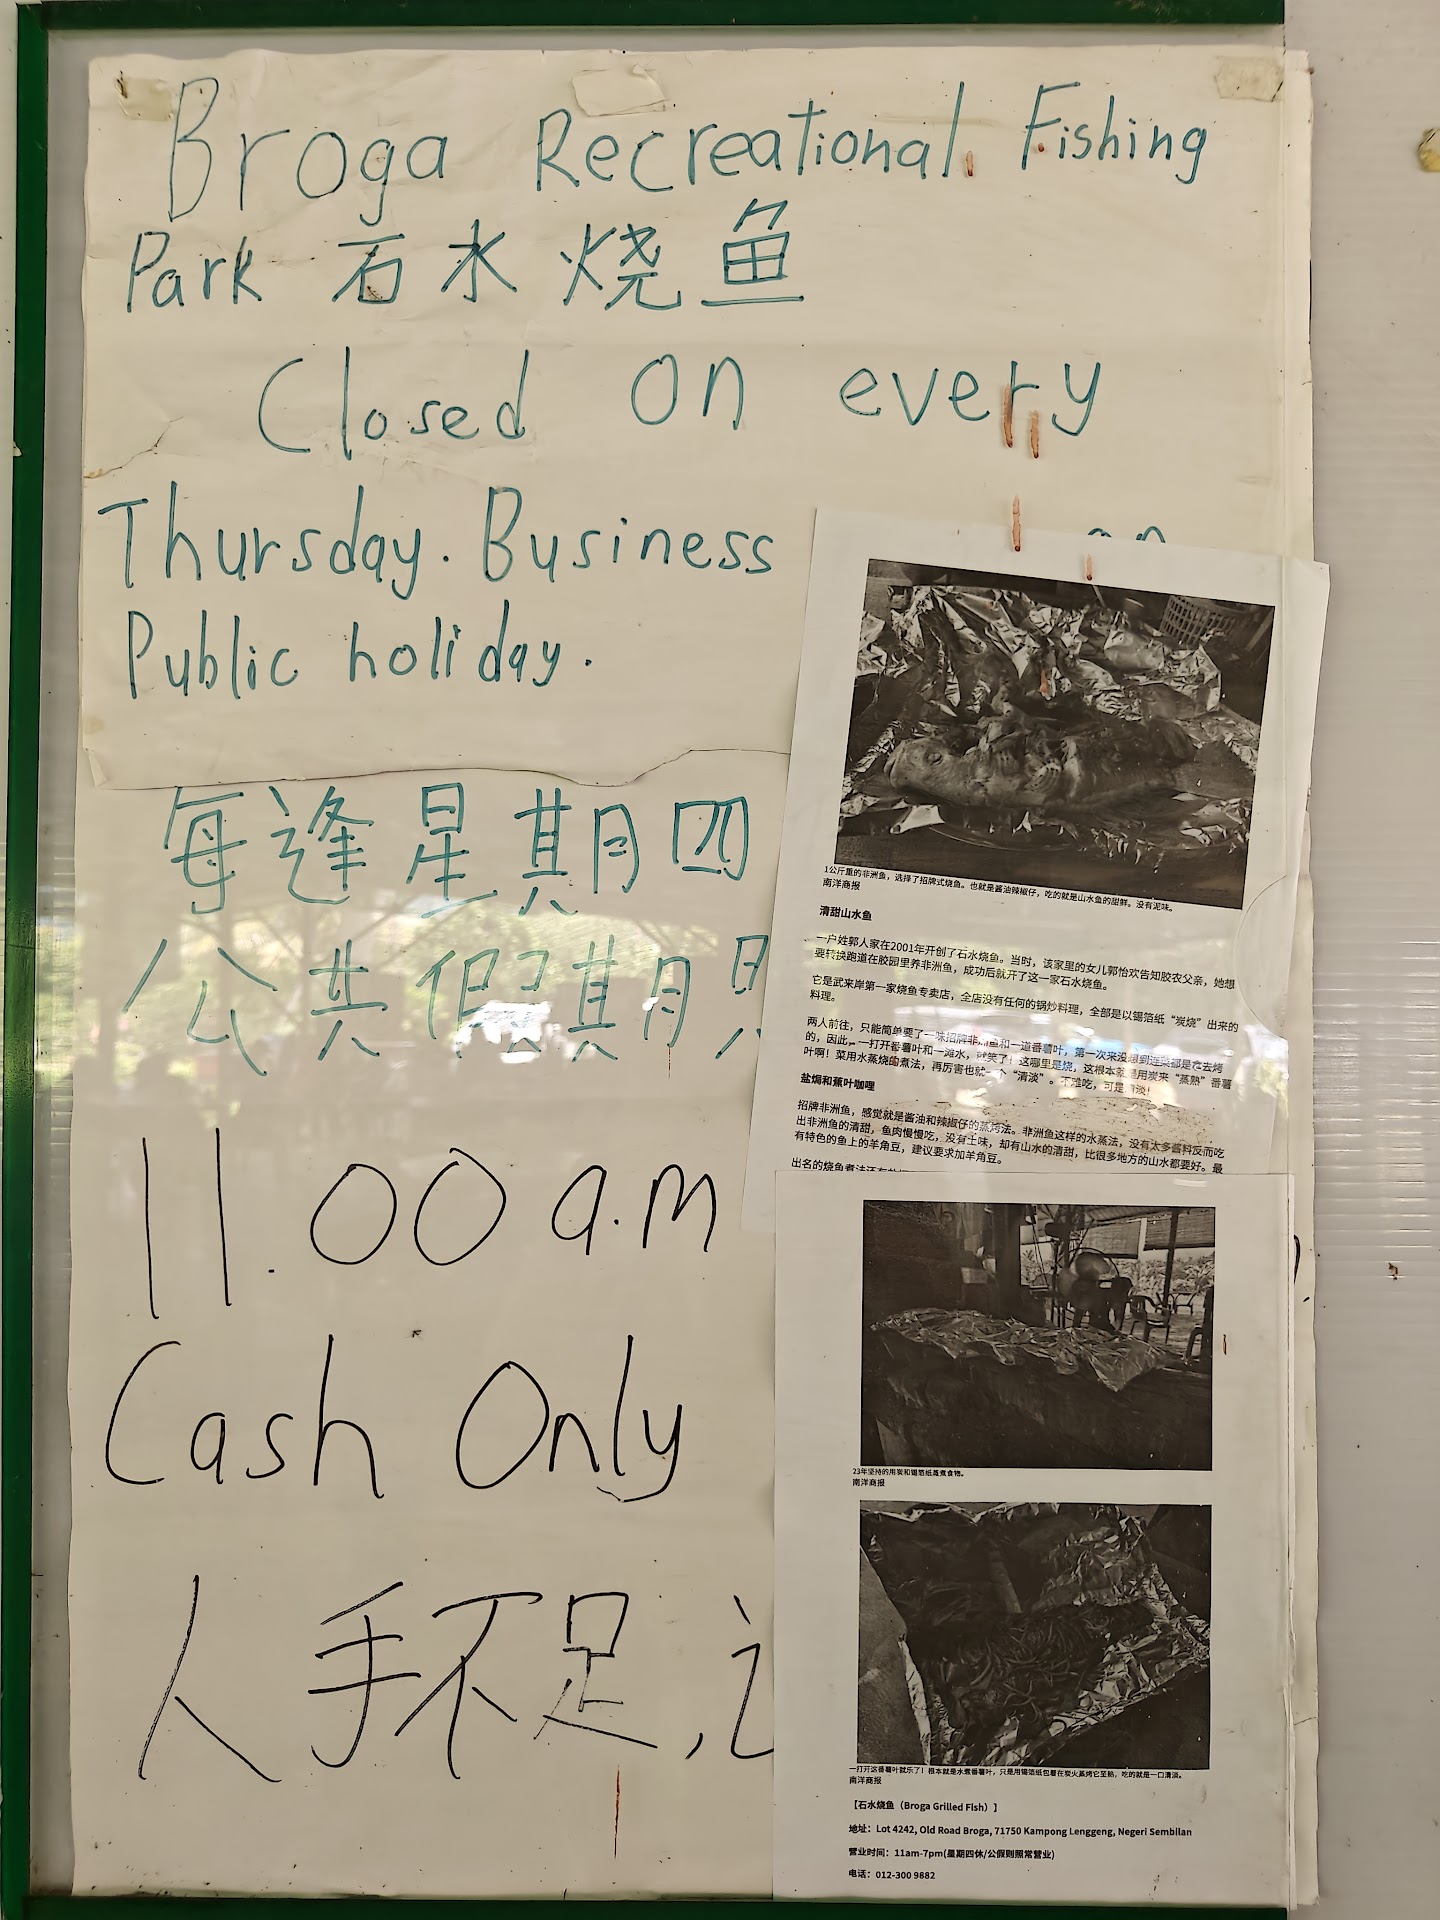 Broga Recreational Fishing
Park 石水烧鱼
Closed on every
Thursday. Business
Public holiday.
每逢星期四
公共假期
11.00 a.m
Cash Only
人手不足,
1公斤重的非洲鱼，选择了招牌式烧鱼。也就是酱油辣椒仔，吃的就是山水鱼的甜鲜。没有泥味。
南洋商报
清甜山水鱼
一户姓郭人家在2001年开创了石水烧鱼。当时，该家里的女儿郭怡欢告知胶农父亲，她想
要转换跑道在胶园里养非洲鱼，成功后就开了这一家石水烧鱼。
它是武来岸第一家烧鱼专卖店，全店没有任何的锅炒料理，全部是以锡箔纸“炭烧”出来的
料理。
两人前往，只能简单要了一味招牌非洲鱼和一道番薯叶，第一次来没想到连菜都是拿去烤
的，因此，一打开番薯叶和一滩水，就笑了！这哪里是烧，这根本就是用炭来“蒸熟”番薯
叶啊！菜用水蒸烧的煮法，再厉害也就一个“清淡”。不难吃，可是清淡！
盐焗和蕉叶咖哩
招牌非洲鱼，感觉就是酱油和辣椒仔的蒸烤法。非洲鱼这样的水蒸法，没有太多酱料反而吃
出非洲鱼的清甜，鱼肉慢慢吃，没有土味，却有山水的清甜，比很多地方的山水都要好。最
有特色的鱼上的羊角豆，建议要求加羊角豆。
出名的烧鱼煮法还有
23年坚持的用炭和锡箔纸蒸煮食物。
南洋商报
一打开这番薯叶就乐了！根本就是水煮番薯叶，只是用锡箔纸包着在炭火蒸烤它至熟，吃的就是一口清淡。
南洋商报
【石水烧鱼（Broga Grilled Fish）】
地址：Lot 4242, Old Road Broga, 71750 Kampong Lenggeng, Negeri Sembilan
营业时间：11am-7pm(星期四休/公假则照常营业)
电话：012-300 9882